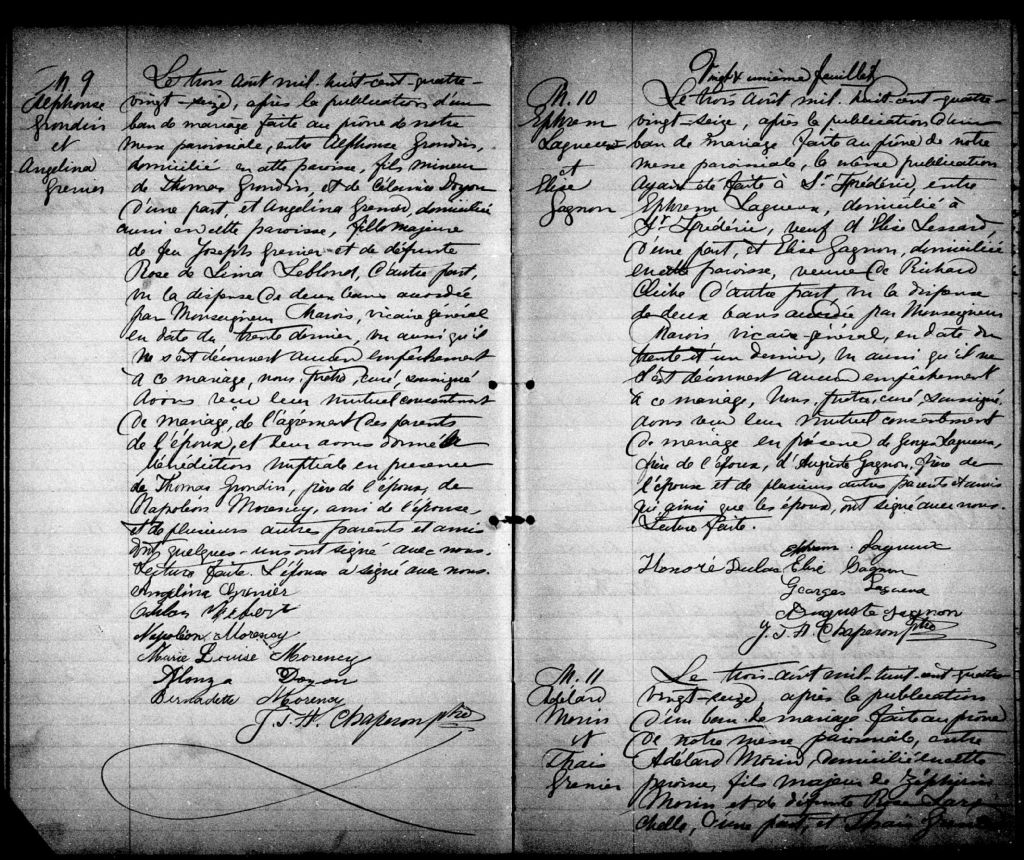 M. 9
Alphonse
Grondin
et
Angelina
Grenier
Le trois août mil-huit-cent-quatre-
vingt-seize, après la publication d'un
ban de mariage faite au prône de notre
messe paroissiale, entre Alphonse Grondin,
domicilié en cette paroisse, fils mineur
de Thomas Grondin, et de Célanire Doyon
d'une part, et Angelina Grenier, domiciliée
aussi en cette paroisse, fille majeure
de feu Joseph Grenier et de défunte
Rose de Lima Leblond, d'autre part,
vu la dispense de deux bans accordée
par Monseigneur Marois, vicaire général
en date du trente dernier, vu aussi qu'il
ne s'est découvert aucun empêchement
à ce mariage, nous, prêtre, curé, soussigné
avons reçu leur mutuel consentement
de mariage, de l'agrément des parents
de l'époux, et leur avons donné la
bénédiction nuptiale en présence
de Thomas Grondin, père de l'époux, de
Napoléon Morency, ami de l'épouse,
et de plusieurs autres parents et amis
dont quelques-uns ont signé avec nous.
Lecture faite. L'épouse a signé avec nous.
Angelina Grenier
Napoléon Morency
Marie Louise Morency
Alonza Doyon
Bernadette Morency
J. T. A. Chaperon Ptre
Vingt unième feuillet
M. 10
Ephrem
Lagueux
et
Elise
Gagnon
Le trois août mil-huit-cent-quatre-
vingt-seize, après la publication d'un
ban de mariage faite au prône de notre
messe paroissiale, la même publication
ayant été faite à St Frédéric, entre
Ephrem Lagueux, domicilié à
St Frédéric, veuf d'Elise Lessard,
d'une part, et Elise Gagnon, domiciliée
en cette paroisse, veuve de Richard
Cliche d'autre part, vu la dispense
de deux bans accordée par Monseigneur
Marois vicaire général, en date du
trente et un dernier, vu aussi qu'il ne
s'est découvert aucun empêchement
à ce mariage, Nous, prêtre, curé, soussigné,
avons reçu leur mutuel consentement
de mariage en présence de Georges Lagueux,
frère de l'époux, d'Auguste Gagnon, frère de
l'épouse et de plusieurs autres parents et amis
qui, ainsi que les époux, ont signé avec nous.
Lecture faite.
ephrem Lagueux
Honoré Duclos Elise Gagnon
Georges Lagueux
Auguste gagnon
J. T. A. Chaperon Ptre
M. 11
Adélard
Morin
et
Thais
Grenier
Le trois août mil-huit-cent-quatre
vingt-seize après la publication
d'un ban de mariage faite au prône
de notre messe paroissiale, entre
Adélard Morin, domicilié en cette
paroisse, fils majeur de Zéphirin
Morin et de défunte Rose Lare
chelle, d'une part, et Thais Grenier